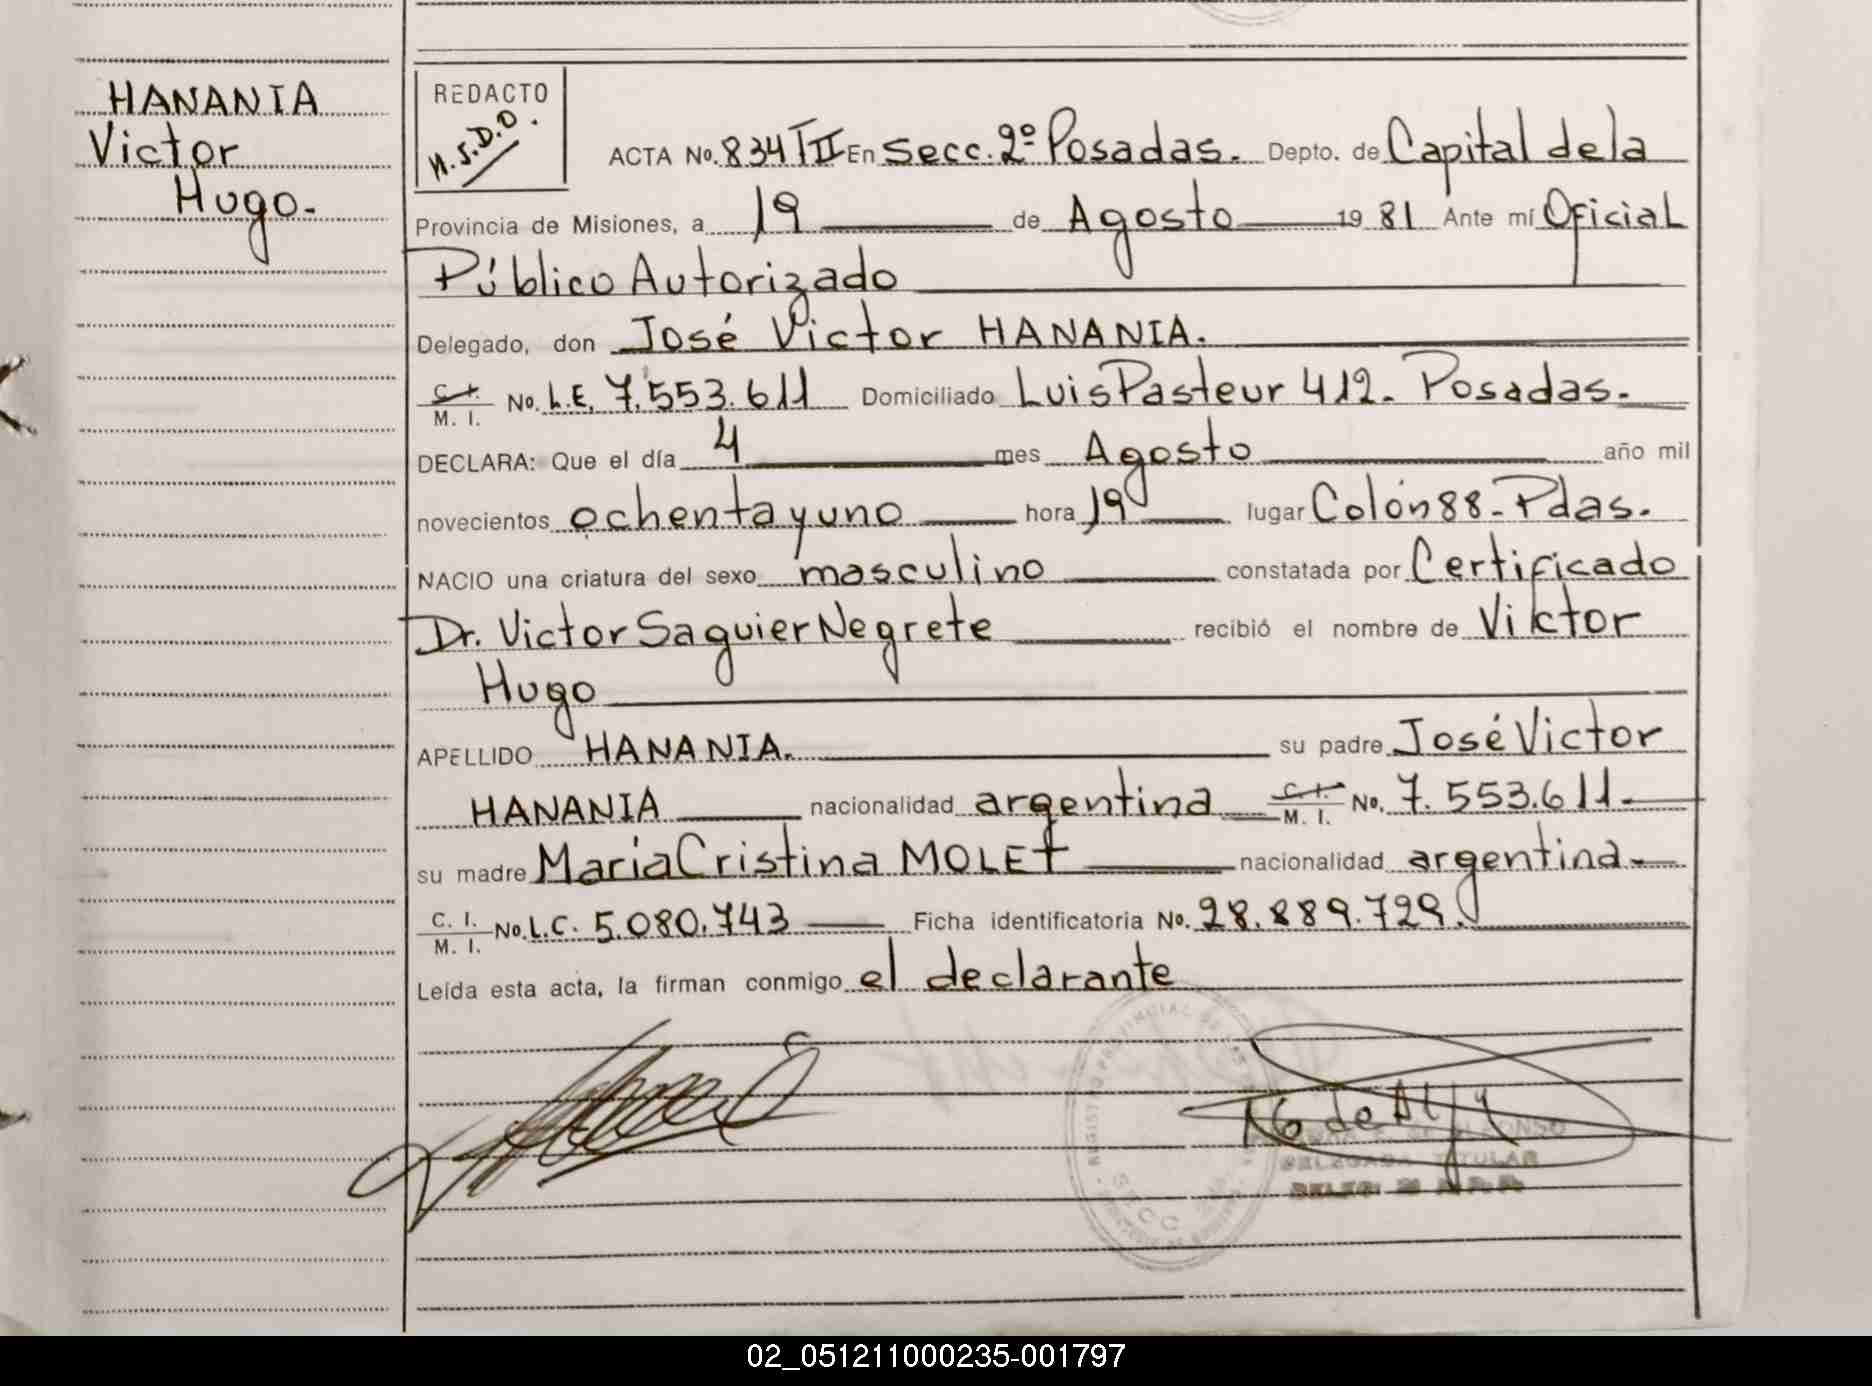 HANANIA
Victor
Hugo.-
REDACTO
M.S.D.O.
ACTA No. 834 TII En Secc. 2º Posadas. Depto. de Capital de la
Provincia de Misiones, a 19 de Agosto 19 81 Ante mí Oficial
Público Autorizado
Delegado, don José Victor HANANIA.
C. I. / M. I. No. L.E. 7.553.611 Domiciliado Luis Pasteur 412.- Posadas.-
DECLARA: Que el día 4 mes Agosto año mil
novecientos ochenta y uno hora 19 lugar Colón 88-Pdas.
NACIO una criatura del sexo masculino constatada por Certificado
Dr. Victor Saguier Negrete recibió el nombre de Victor
Hugo
APELLIDO HANANIA. su padre José Victor
HANANIA nacionalidad argentina C. I. / M. I. No. 7.553.611.-
su madre María Cristina MOLET nacionalidad argentina.-
C. I. / M. I. No. L.C. 5.080.743 Ficha identificatoria No. 28.889.729.
Leída esta acta, la firman conmigo el declarante
REGISTRO PROVINCIAL DE
SECC
DELEGADA TITULAR
02_051211000235-001797